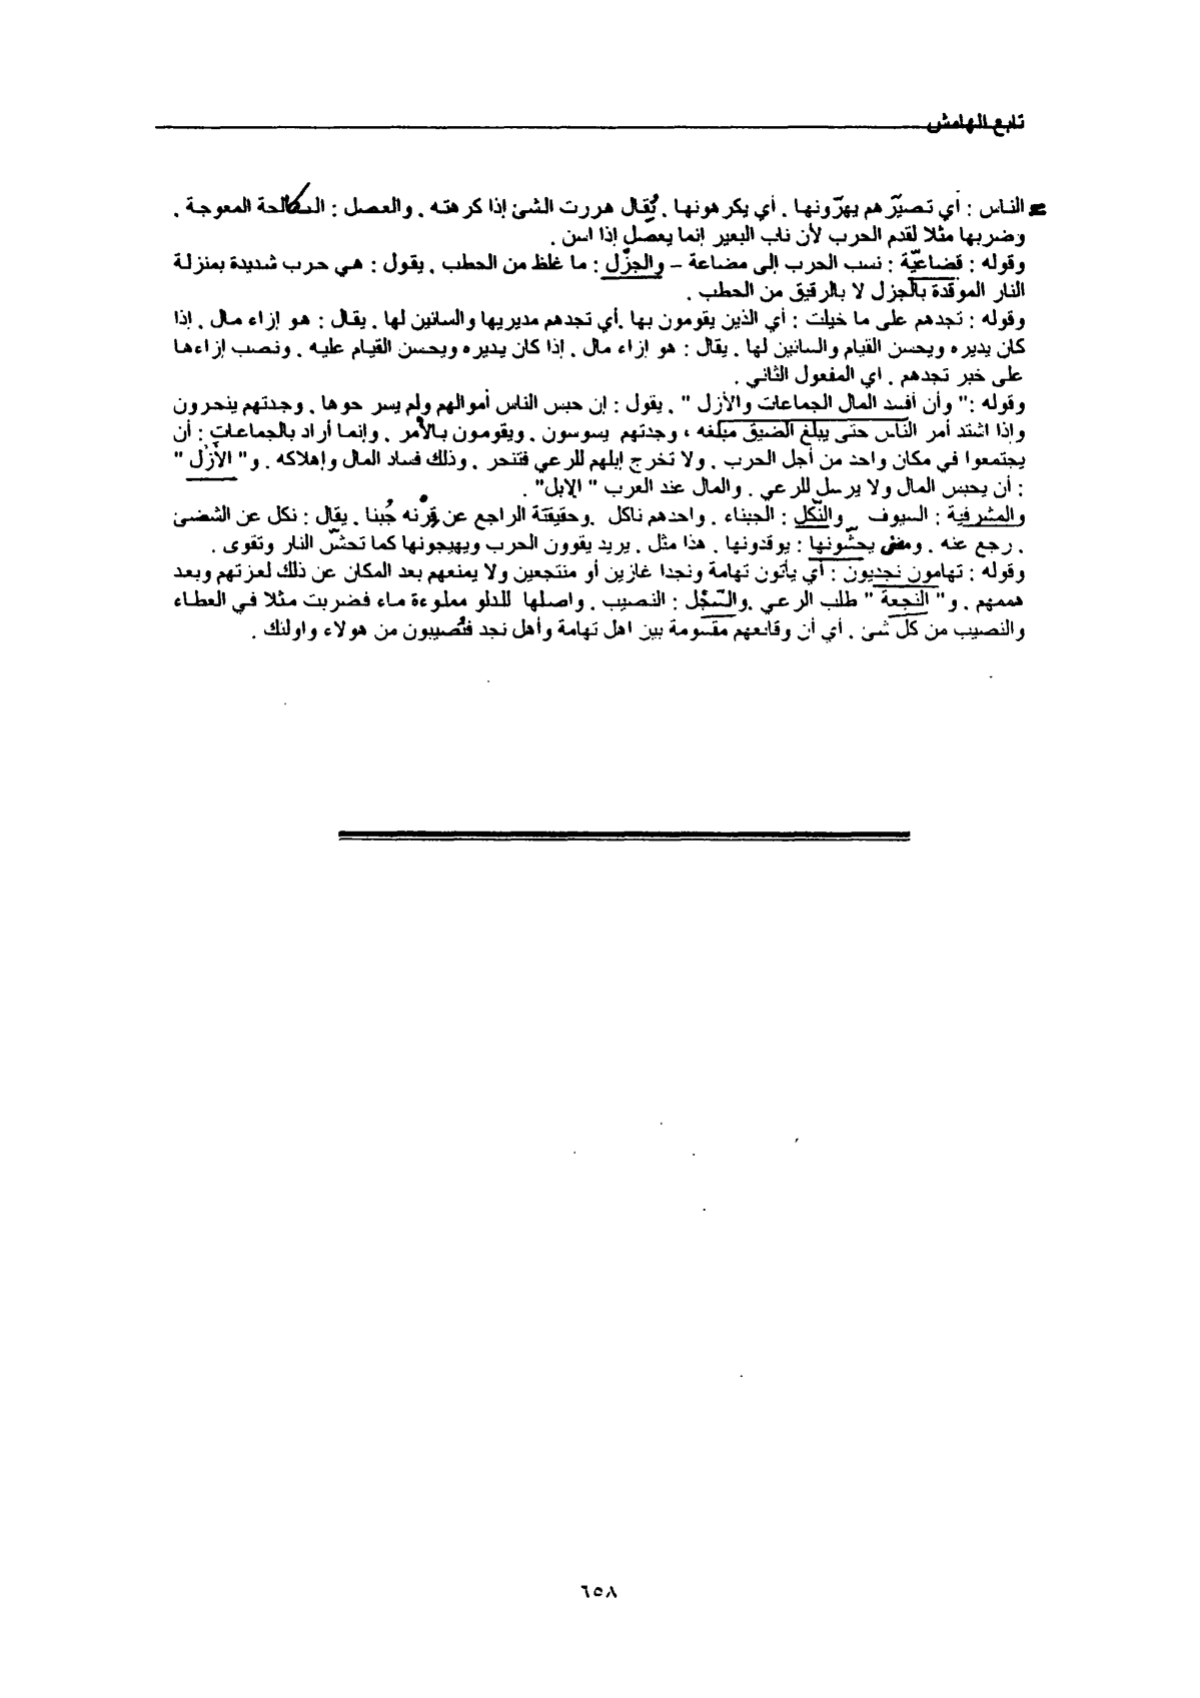 تابع الهامش
= الناس : أي تصيّر هم يهرّونها . أي يكرهونها . يُقال هررت الشئ إذا كرهته . والعصل : الكالحة المعوجة .
وضربها مثلا لقدم الحرب لأن ناب البعير إنما يعصَل إذا اسن .
وقوله : قضاعيّة : نسب الحرب إلى مضاعة – والجزْل : ما غلظ من الحطب . يقول : هي حرب شديدة بمنزلة
النار الموقدة بالجزل لا بالرقيق من الحطب .
وقوله : تجدهم على ما خيلت : أي الذين يقومون بها .أي تجدهم مديريها والسانين لها . يقال : هو إزاء مال . إذا
كان يديره ويحسن القيام والسانين لها . يقال : هو إزاء مال . إذا كان يديره ويحسن القيام عليه . ونصب إزاءها
على خبر تجدهم . اي المفعول الثاني .
وقوله :" وأن أفسد المال الجماعات والأزل " . يقول : إن حبس الناس أموالهم ولم يسر حوها . وجدتهم ينحرون
وإذا اشتد أمر الناس حتى يبلغ الضيق مبلغه ، وجدتهم يسوسون . ويقومون بالأمر . وإنما أراد بالجماعات : أن
يجتمعوا في مكان واحد من أجل الحرب . ولا تخرج إبلهم للرعي فتنحر . وذلك فساد المال وإهلاكه . و" الأزْل "
: أن يحبس المال ولا يرسل للرعي . والمال عند العرب " الإبل" .
والمشرفية : السيوف والنّكل : الجبناء . واحدهم ناكل .وحقيقتة الراجع عن قِرْنه جُبنا . يقال : نكل عن الشئ
. رجع عنه . ومعنى يحشّونها : يوقدونها . هذا مثل . يريد يقوون الحرب ويهيجونها كما تحشّ النار وتقوى .
وقوله : تهامون نجديون : أي يأتون تهامة ونجدا غازين أو منتجعين ولا يمنعهم بعد المكان عن ذلك لعزتهم وبعد
هممهم . و" النجعة " طلب الرعي .والسّجْل : النصيب . واصلها للدلو مملوءة ماء فضربت مثلا في العطاء
والنصيب من كل شئ . أي أن وقائعهم مقسومة بين اهل تهامة وأهل نجد فتُصيبون من هولاء واولئك .
٦٥٨